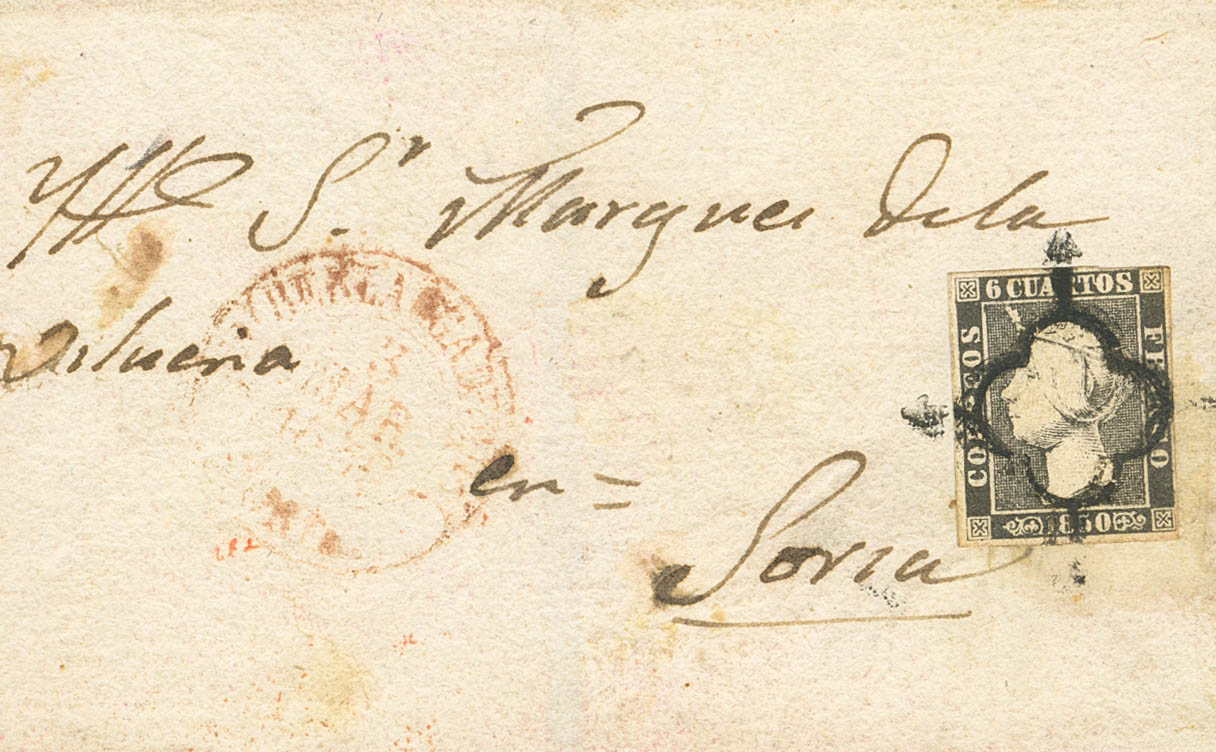 Sr Marques dela
Vilueña
en =
Soria
6 CUARTOS
CORREOS
FRANCO
1850
MAR